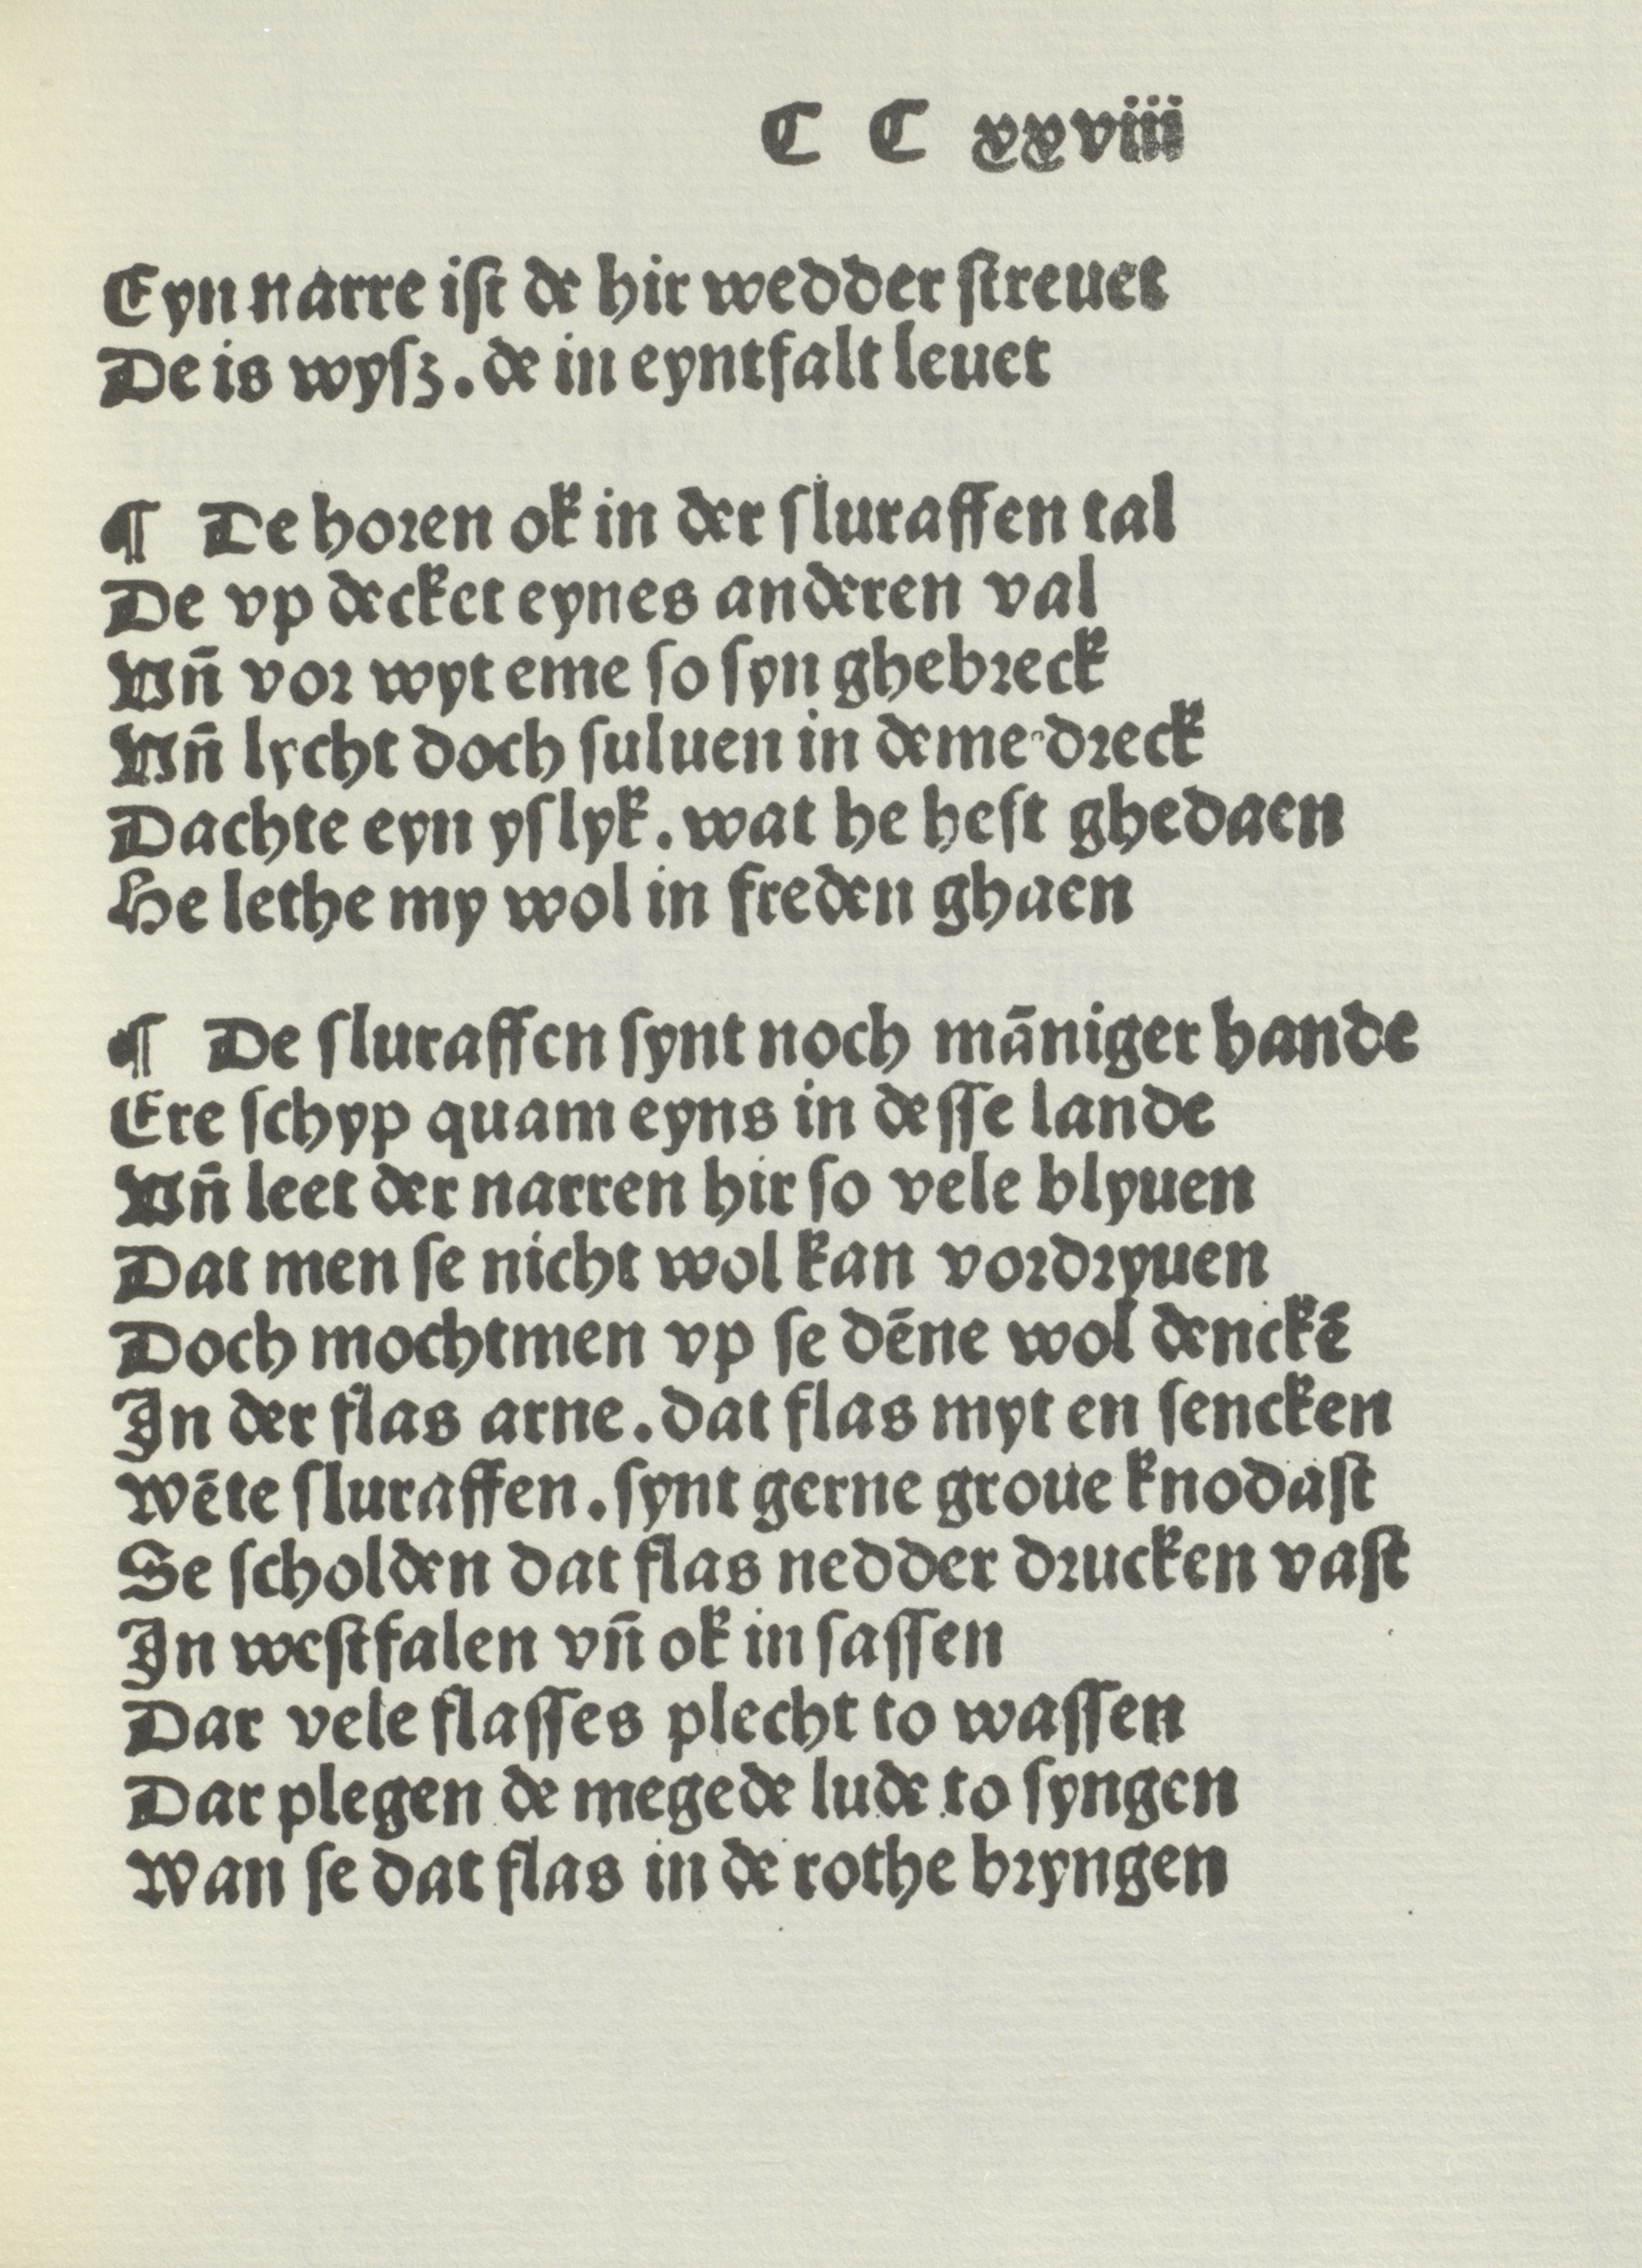 C C xxviii
Eyn narre iſt de hir wedder ſtreuet
De is wyſz. de in eyntfalt leuet
¶ De horen ok in der ſluraffen tal
De vp decket eynes anderen val
Vñ vor wyt eme ſo ſyn ghebreck
Vñ lycht doch ſuluen in deme dreck
Dachte eyn yſlyk. wat he heft ghedaen
He lethe my wol in freden ghaen
¶ De ſluraffen ſynt noch māniger hande
Ere ſchyp quam eyns in deſſe lande
Vñ leet der narren hir ſo vele blyuen
Dat men ſe nicht wol kan vordryuen
Doch mochtmen vp ſe dēne wol denckē
In der flas arne. dat flas myt en ſencken
Wēte ſluraffen. ſynt gerne groue knodaſt
Se ſcholden dat flas nedder drucken vaſt
In weſtfalen vñ ok in ſaſſen
Dar vele flaſſes plecht to waſſen
Dar plegen de megede lude to ſyngen
Wan ſe dat flas in de rothe bryngen